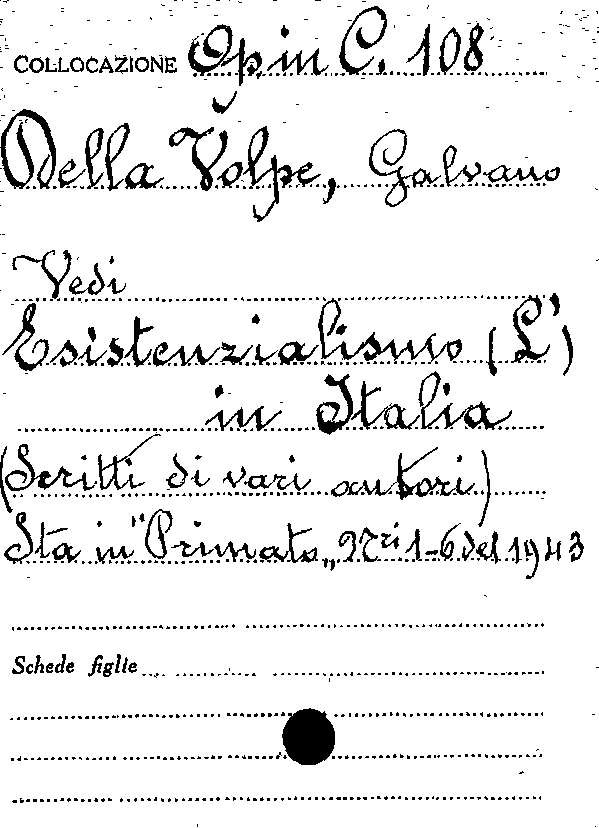 COLLOCAZIONE Op in C. 108
Della Volpe, Galvano
Vedi
Esistenzialismo (L')
in Italia
(Scritti di vari autori)
Sta in "Primato„ Nri 1-6 del 1943
Schede figlie